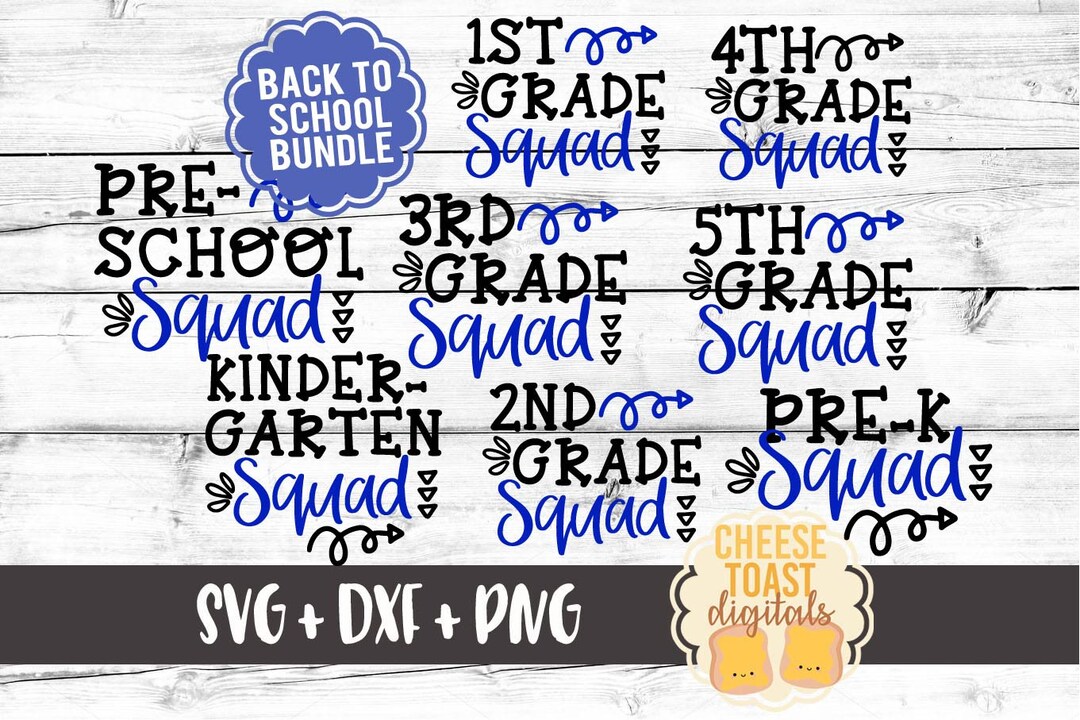 BACK TO
SCHOOL
BUNDLE
1ST
GRADE
Squad
4TH
GRADE
Squad
PRE-
SCHOOL
Squad
3RD
GRADE
Squad
5TH
GRADE
Squad
KINDER-
GARTEN
Squad
2ND
GRADE
Squad
PRE-K
Squad
SVG + DXF + PNG
CHEESE
TOAST
digitals